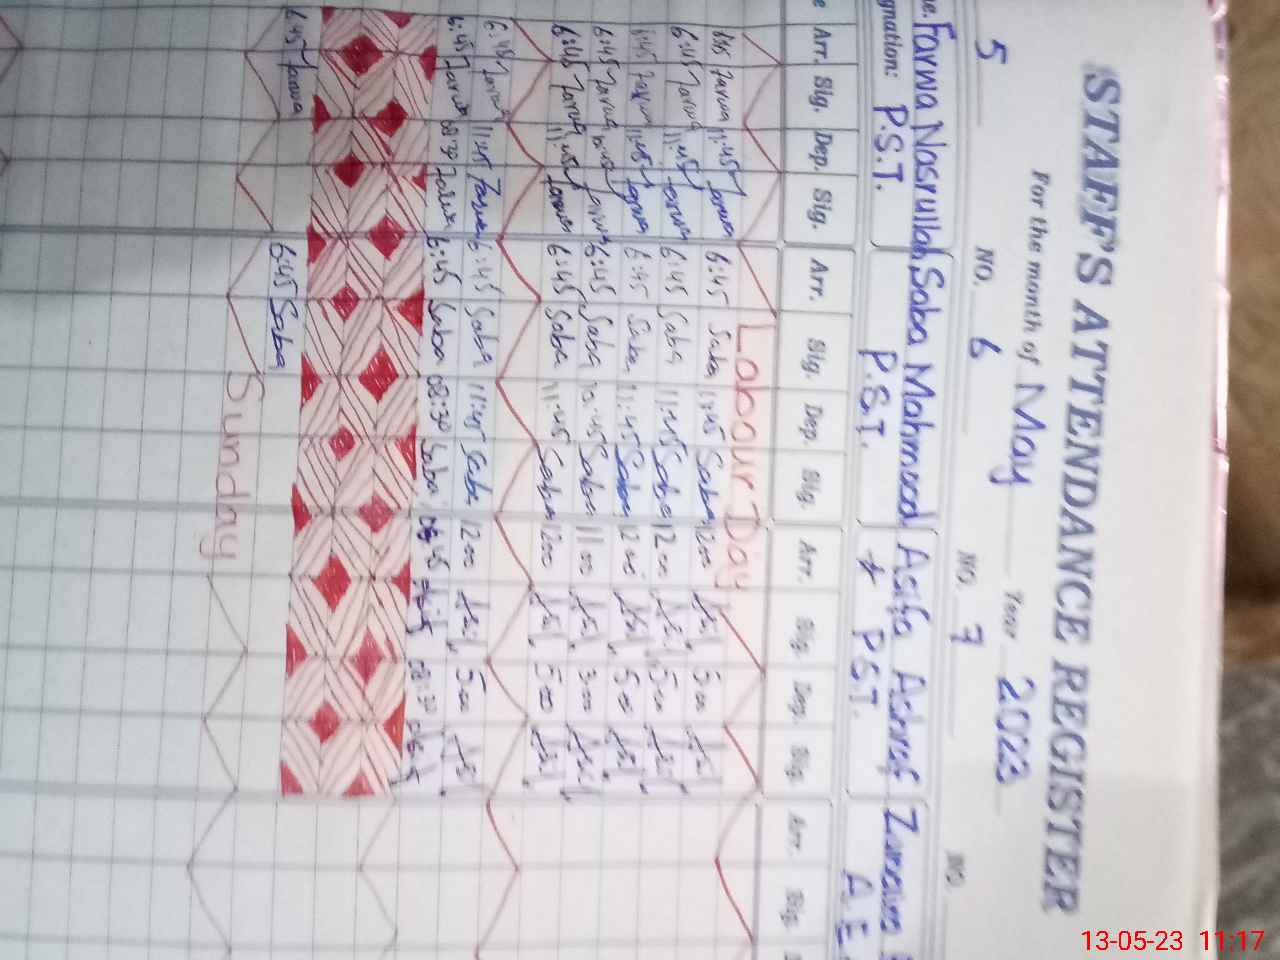 STAFF'S ATTENDANCE REGISTER
For the month of May Year 2023
5 NO. 6 NO. 7 NO.
Farwa Nasrullah Saba Mahmood Asifa Ashraf
gnation: P.S.T. P.S.T. P.S.T. A.E
e Arr. Sig. Dep. Sig. Arr. Sig. Dep. Sig. Arr. Sig. Dep. Sig. Arr. Sig.
Labour Day
6:45 Farwa 11:45 Farwa 6:45 Saba 11:45 Saba 1200 5:00
6:45 Farwa 11:45 Farwa 6:45 Saba 11:45 Saba 1200 5:00
6:45 Farwa 11:45 Farwa 6:45 Saba 11:45 Saba 1200 5:00
6:45 Farwa 10:45 Farwa 6:45 Saba 10:45 Saba 1100 3:00
6:45 Farwa 11:45 Farwa 6:45 Saba 11:45 Saba 1200 5:00
6:45 Farwa 11:45 Farwa 6:45 Saba 11:45 Saba 1200 5:00
6:45 Farwa 08:30 Farwa 6:45 Saba 08:30 Saba 06:45 08:30
6:45 Farwa 6:45 Saba
Sunday
13-05-23 11:17